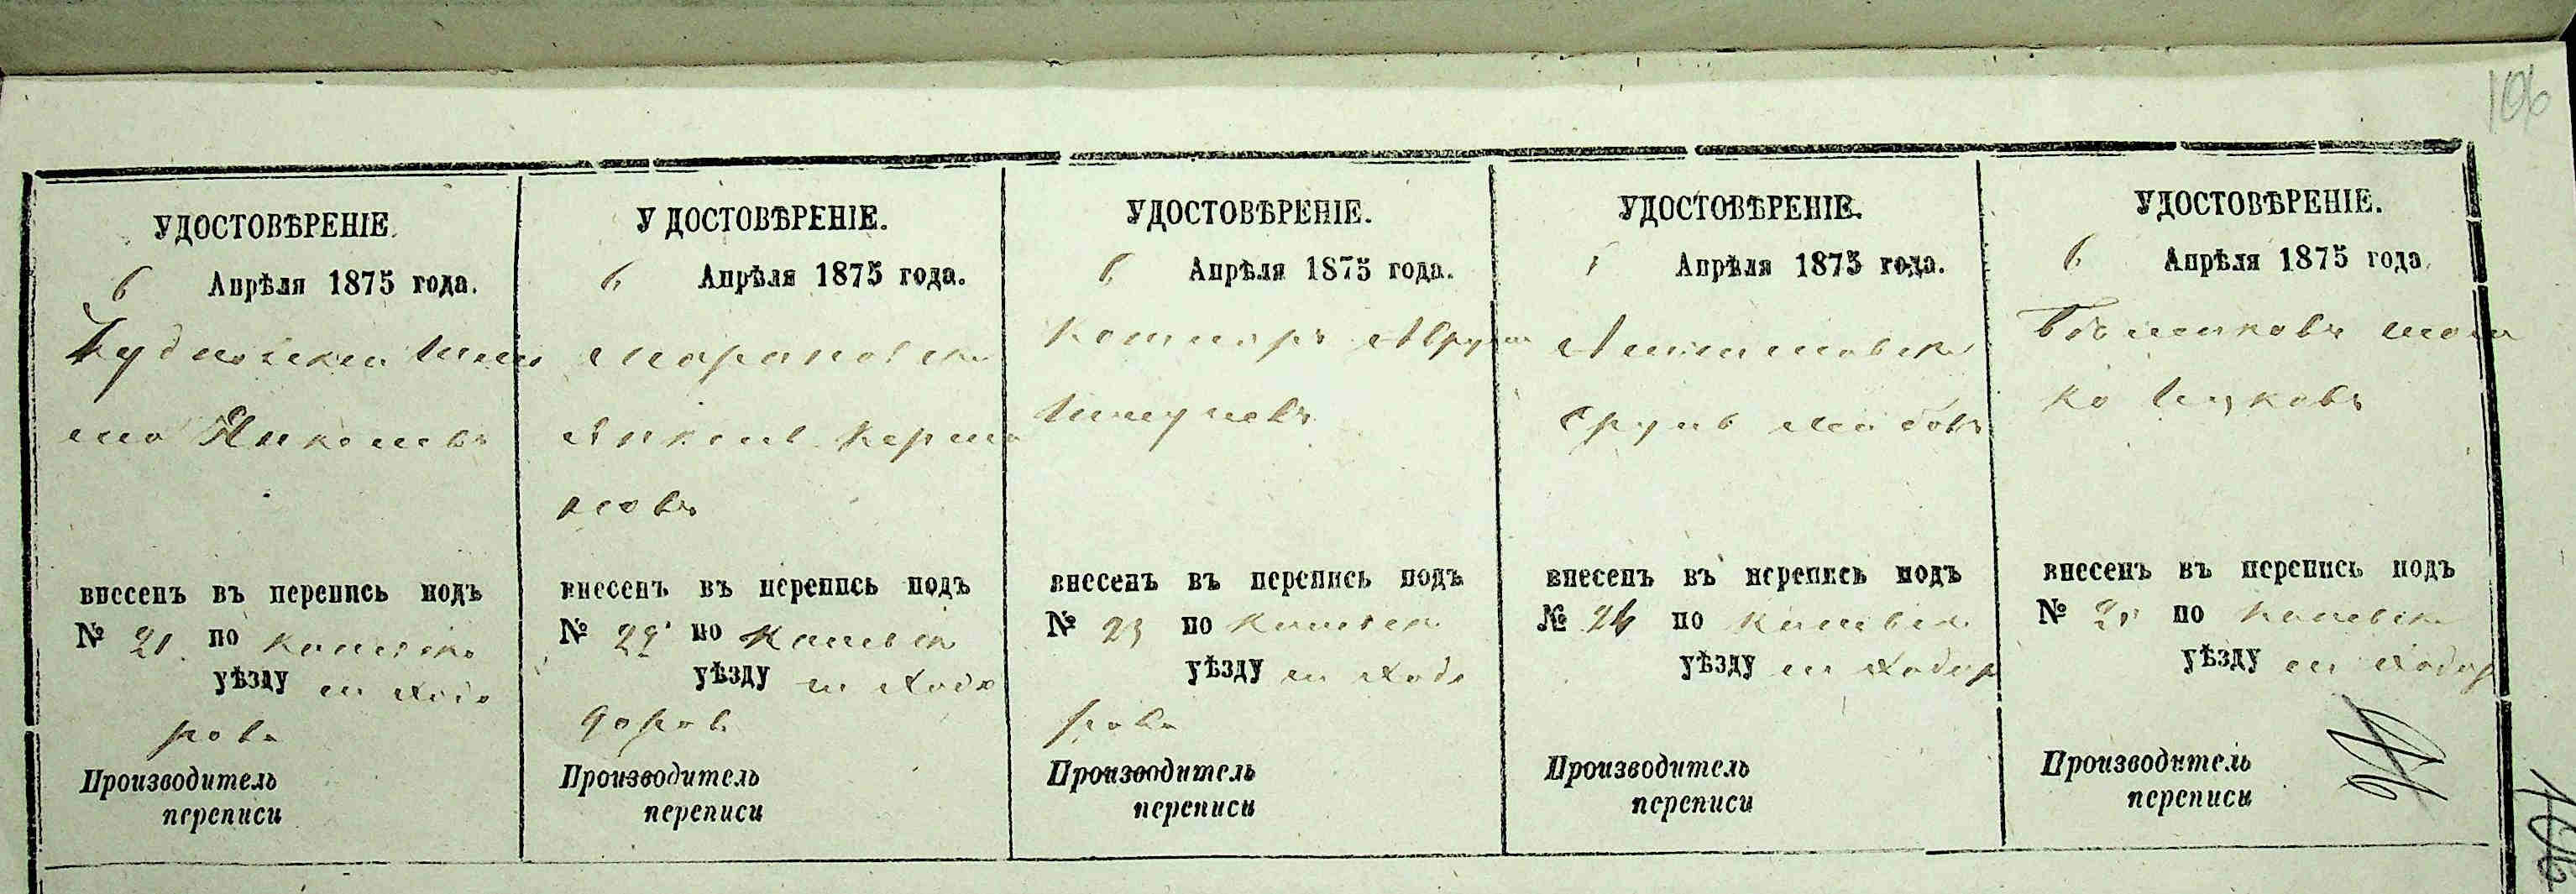 106
УДОСТОВѢРЕНІЕ.
6 Апрѣля 1875 года.
Янкелевъ
внесенъ въ перепись подъ
№ 21 по Каневско
уѣзду м Ходо
рова
Производитель
переписи
УДОСТОВѢРЕНІЕ.
6 Апрѣля 1875 года.
Марановск
Янкель
ковъ
внесенъ въ перепись подъ
№ 22 по Каневск
уѣзду м Ходо
доровъ
Производитель
переписи
УДОСТОВѢРЕНІЕ.
6 Апрѣля 1875 года.
Шмулевъ
внесенъ въ перепись подъ
№ 23 по Каневск
уѣзду м Ходо
рова
Производитель
переписи
УДОСТОВѢРЕНІЕ.
Апрѣля 1875 года.
Сруль
внесенъ въ перепись подъ
№ 24 по Каневск
уѣзду м Ходор
Производитель
переписи
УДОСТОВѢРЕНІЕ.
6 Апрѣля 1875 года.
ко Ицковъ
внесенъ въ перепись подъ
№ 25 по Каневск
уѣзду м Ходор
Производитель
переписи